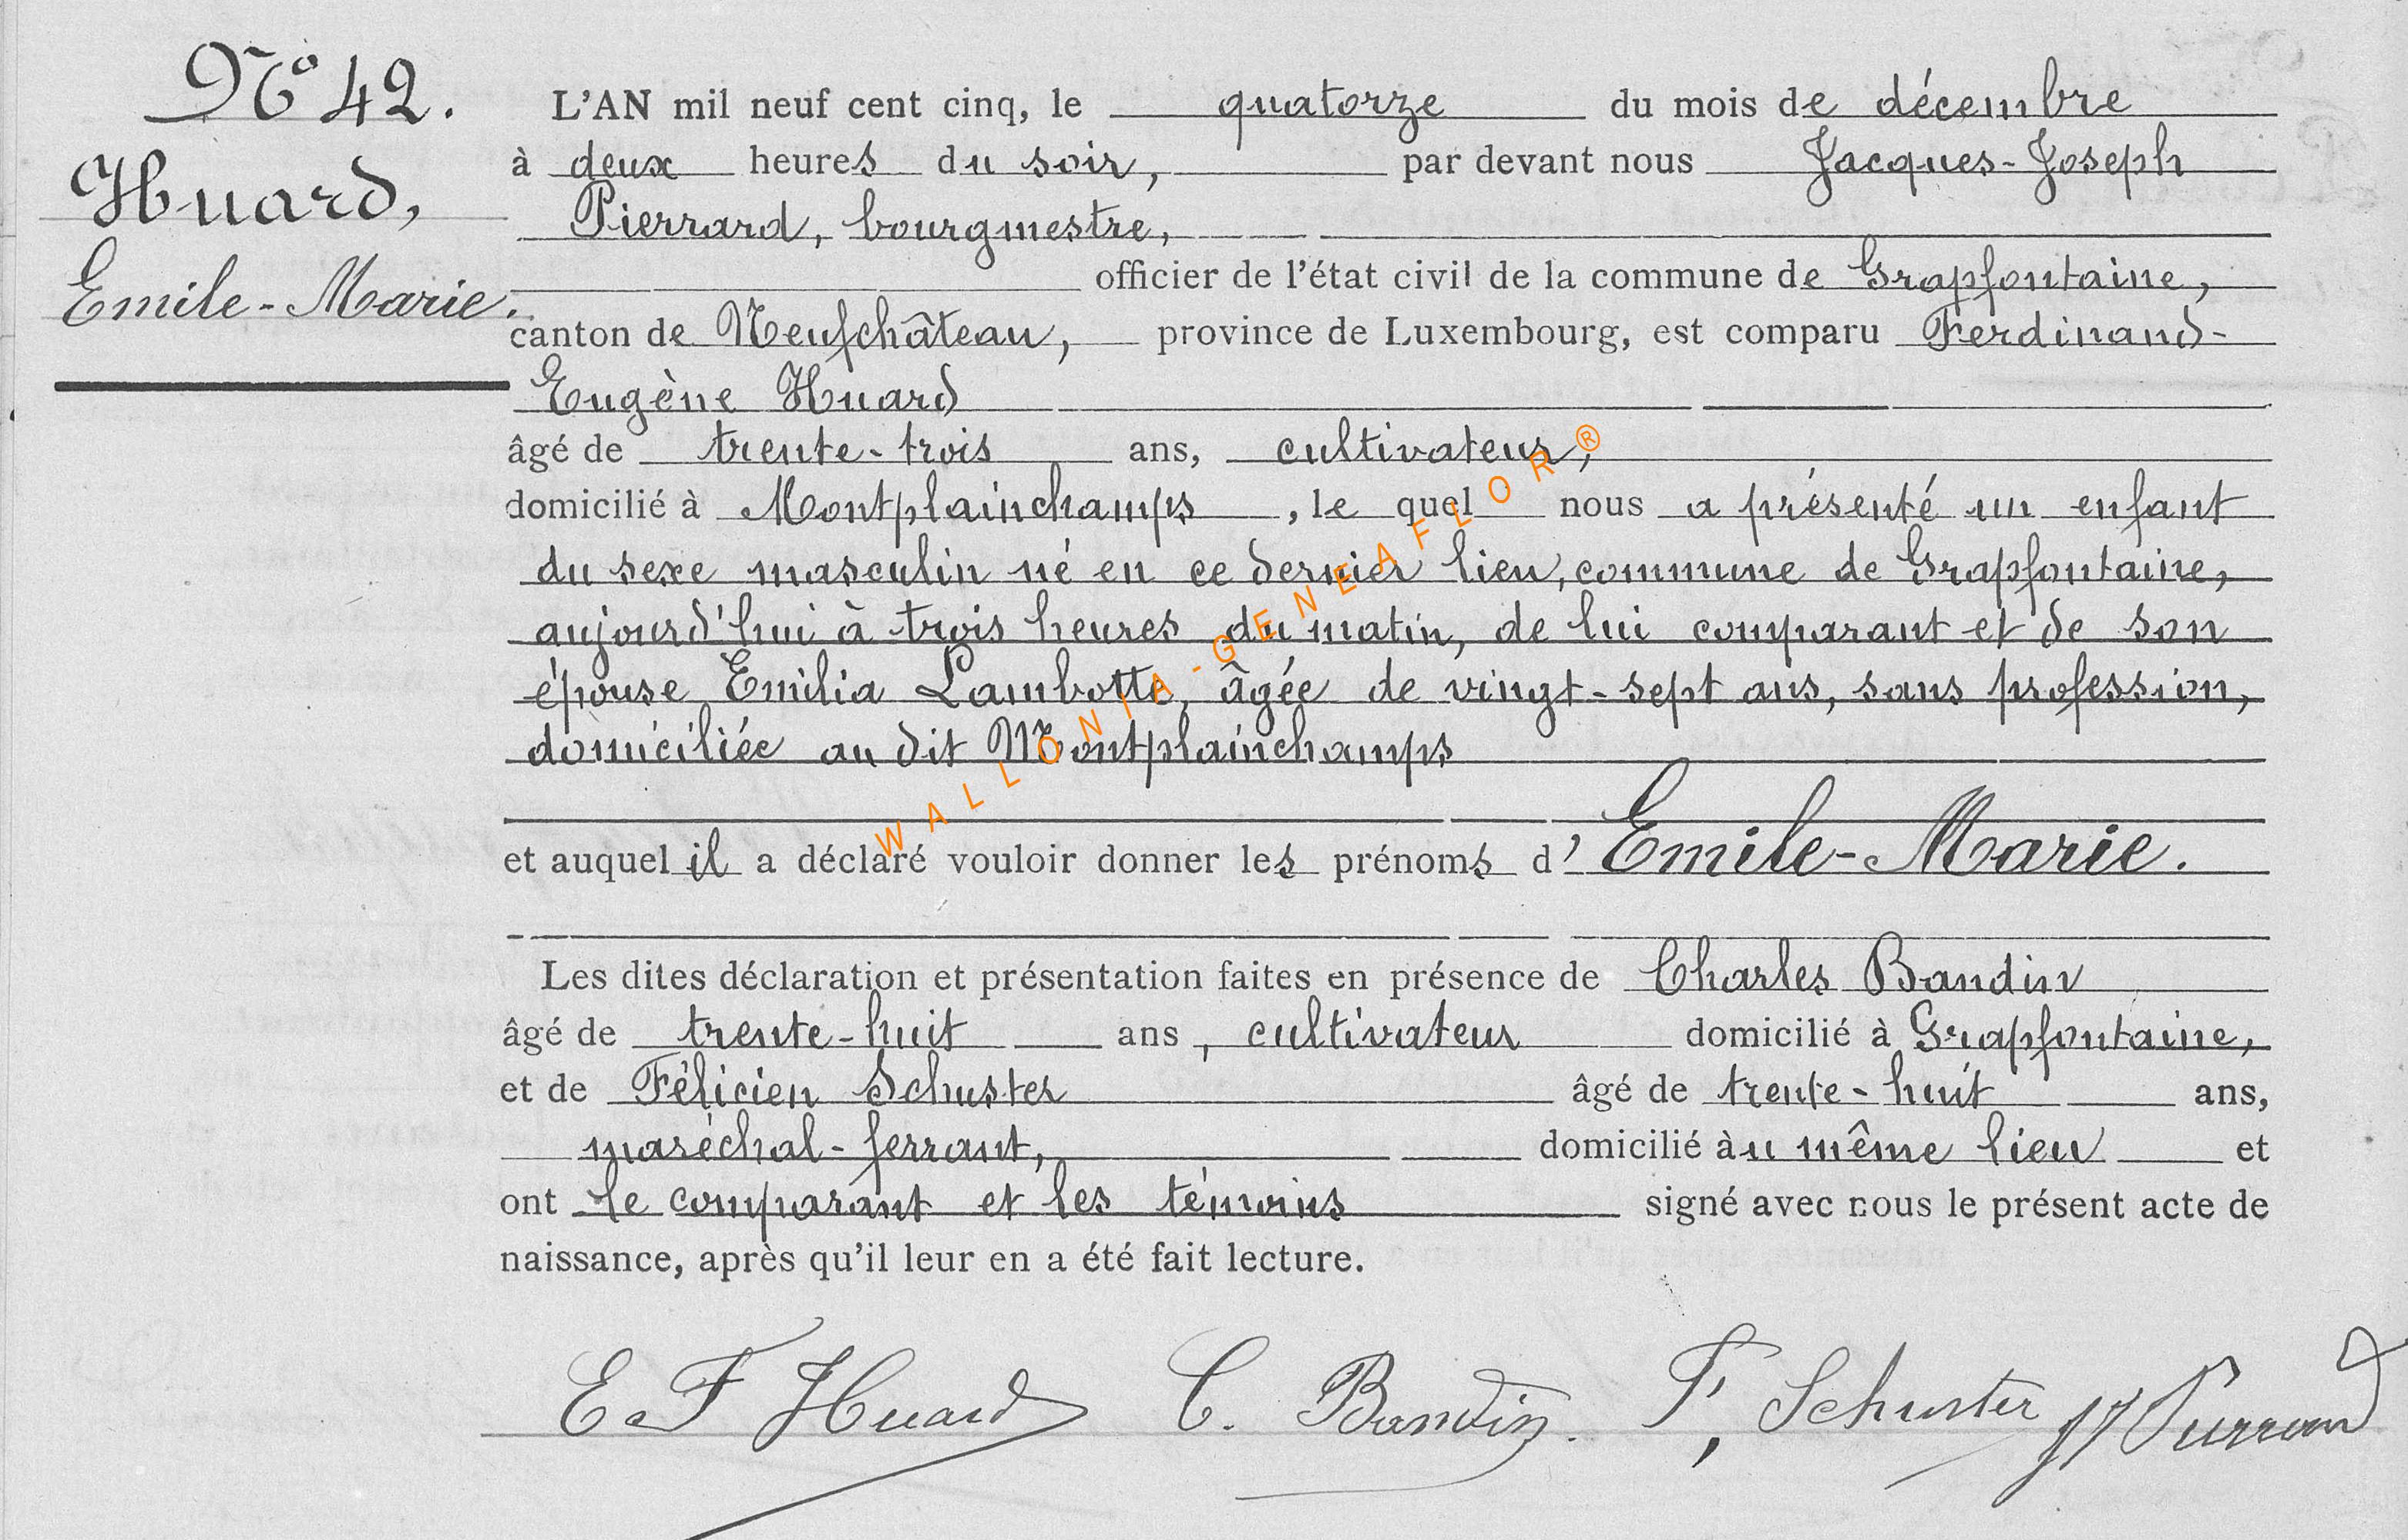 N° 42.
Huard,
Emile-Marie.
L'AN mil neuf cent cinq, le quatorze du mois de décembre
à deux heures du soir, par devant nous Jacques-Joseph
Pierrard, bourgmestre,
officier de l'état civil de la commune de Grapfontaine,
canton de Neufchâteau, province de Luxembourg, est comparu Ferdinand-
Eugène Huard
âgé de trente-trois ans, cultivateur,
domicilié à Montplainchamps, le quel nous a présenté un enfant
du sexe masculin né en ce dernier lieu, commune de Grapfontaine,
aujourd'hui à trois heures du matin, de lui comparant et de son
épouse Emilia Lambotte, âgée de vingt-sept ans, sans profession,
domiciliée au dit Montplainchamps
et auquel il a déclaré vouloir donner les prénoms d'Emile-Marie.
Les dites déclaration et présentation faites en présence de Charles Baudin
âgé de trente-huit ans, cultivateur domicilié à Grapfontaine,
et de Félicien Schuster âgé de trente-huit ans,
maréchal-ferrant, domicilié àu même lieu et
ont le comparant et les témoins signé avec nous le présent acte de
naissance, après qu'il leur en a été fait lecture.
E F Huard C. Baudin. F, Schuster JJ Pierrard
WALLONIA-GENEAFLOR®